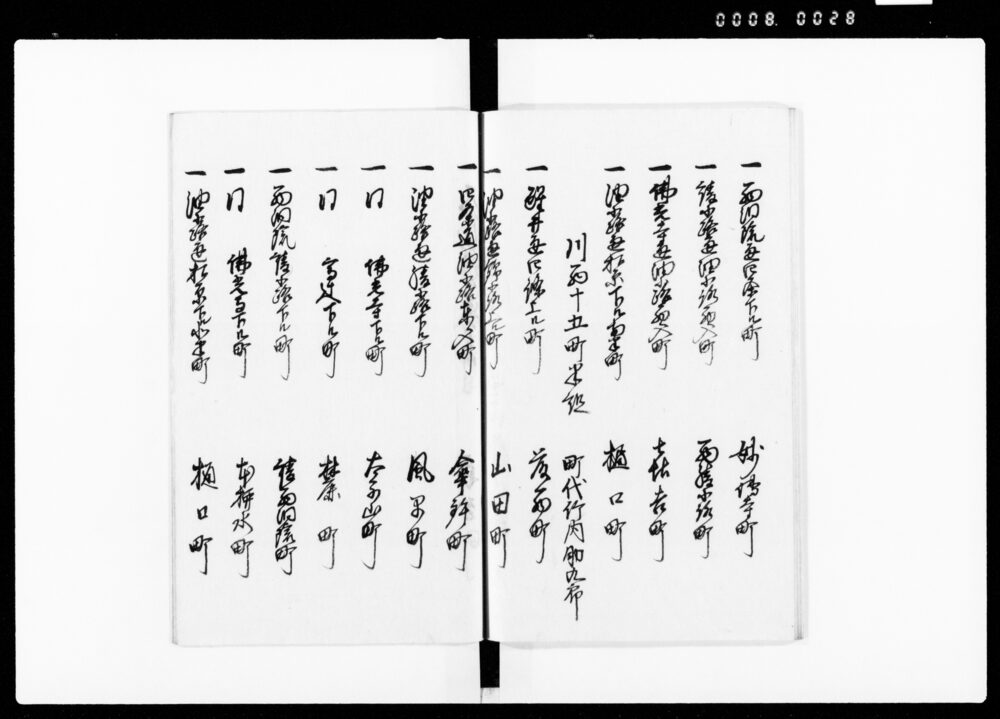 0008. 0028
一 西洞院通四条下ル町 妙傳寺町
一 綾小路通油小路西入町 西綾小路町
一 佛光寺通油小路西入町 喜吉町
一 油小路通松原下ル南半町 樋口町
川西十五町米組 町代竹内助九郎
一 醒井通四条上ル町 藤西町
一 油小路通錦小路上ル町 山田町
一 四条通油小路東入町 傘鉾町
一 油小路通綾小路下ル町 風早町
一 同 佛光寺下ル町 太子山町
一 同 高辻下ル町 町
一 西洞院綾小路下ル町 綾西洞院町
一 同 佛光寺下ル町 本柳水町
一 油小路通松原下ル北半町 樋口町